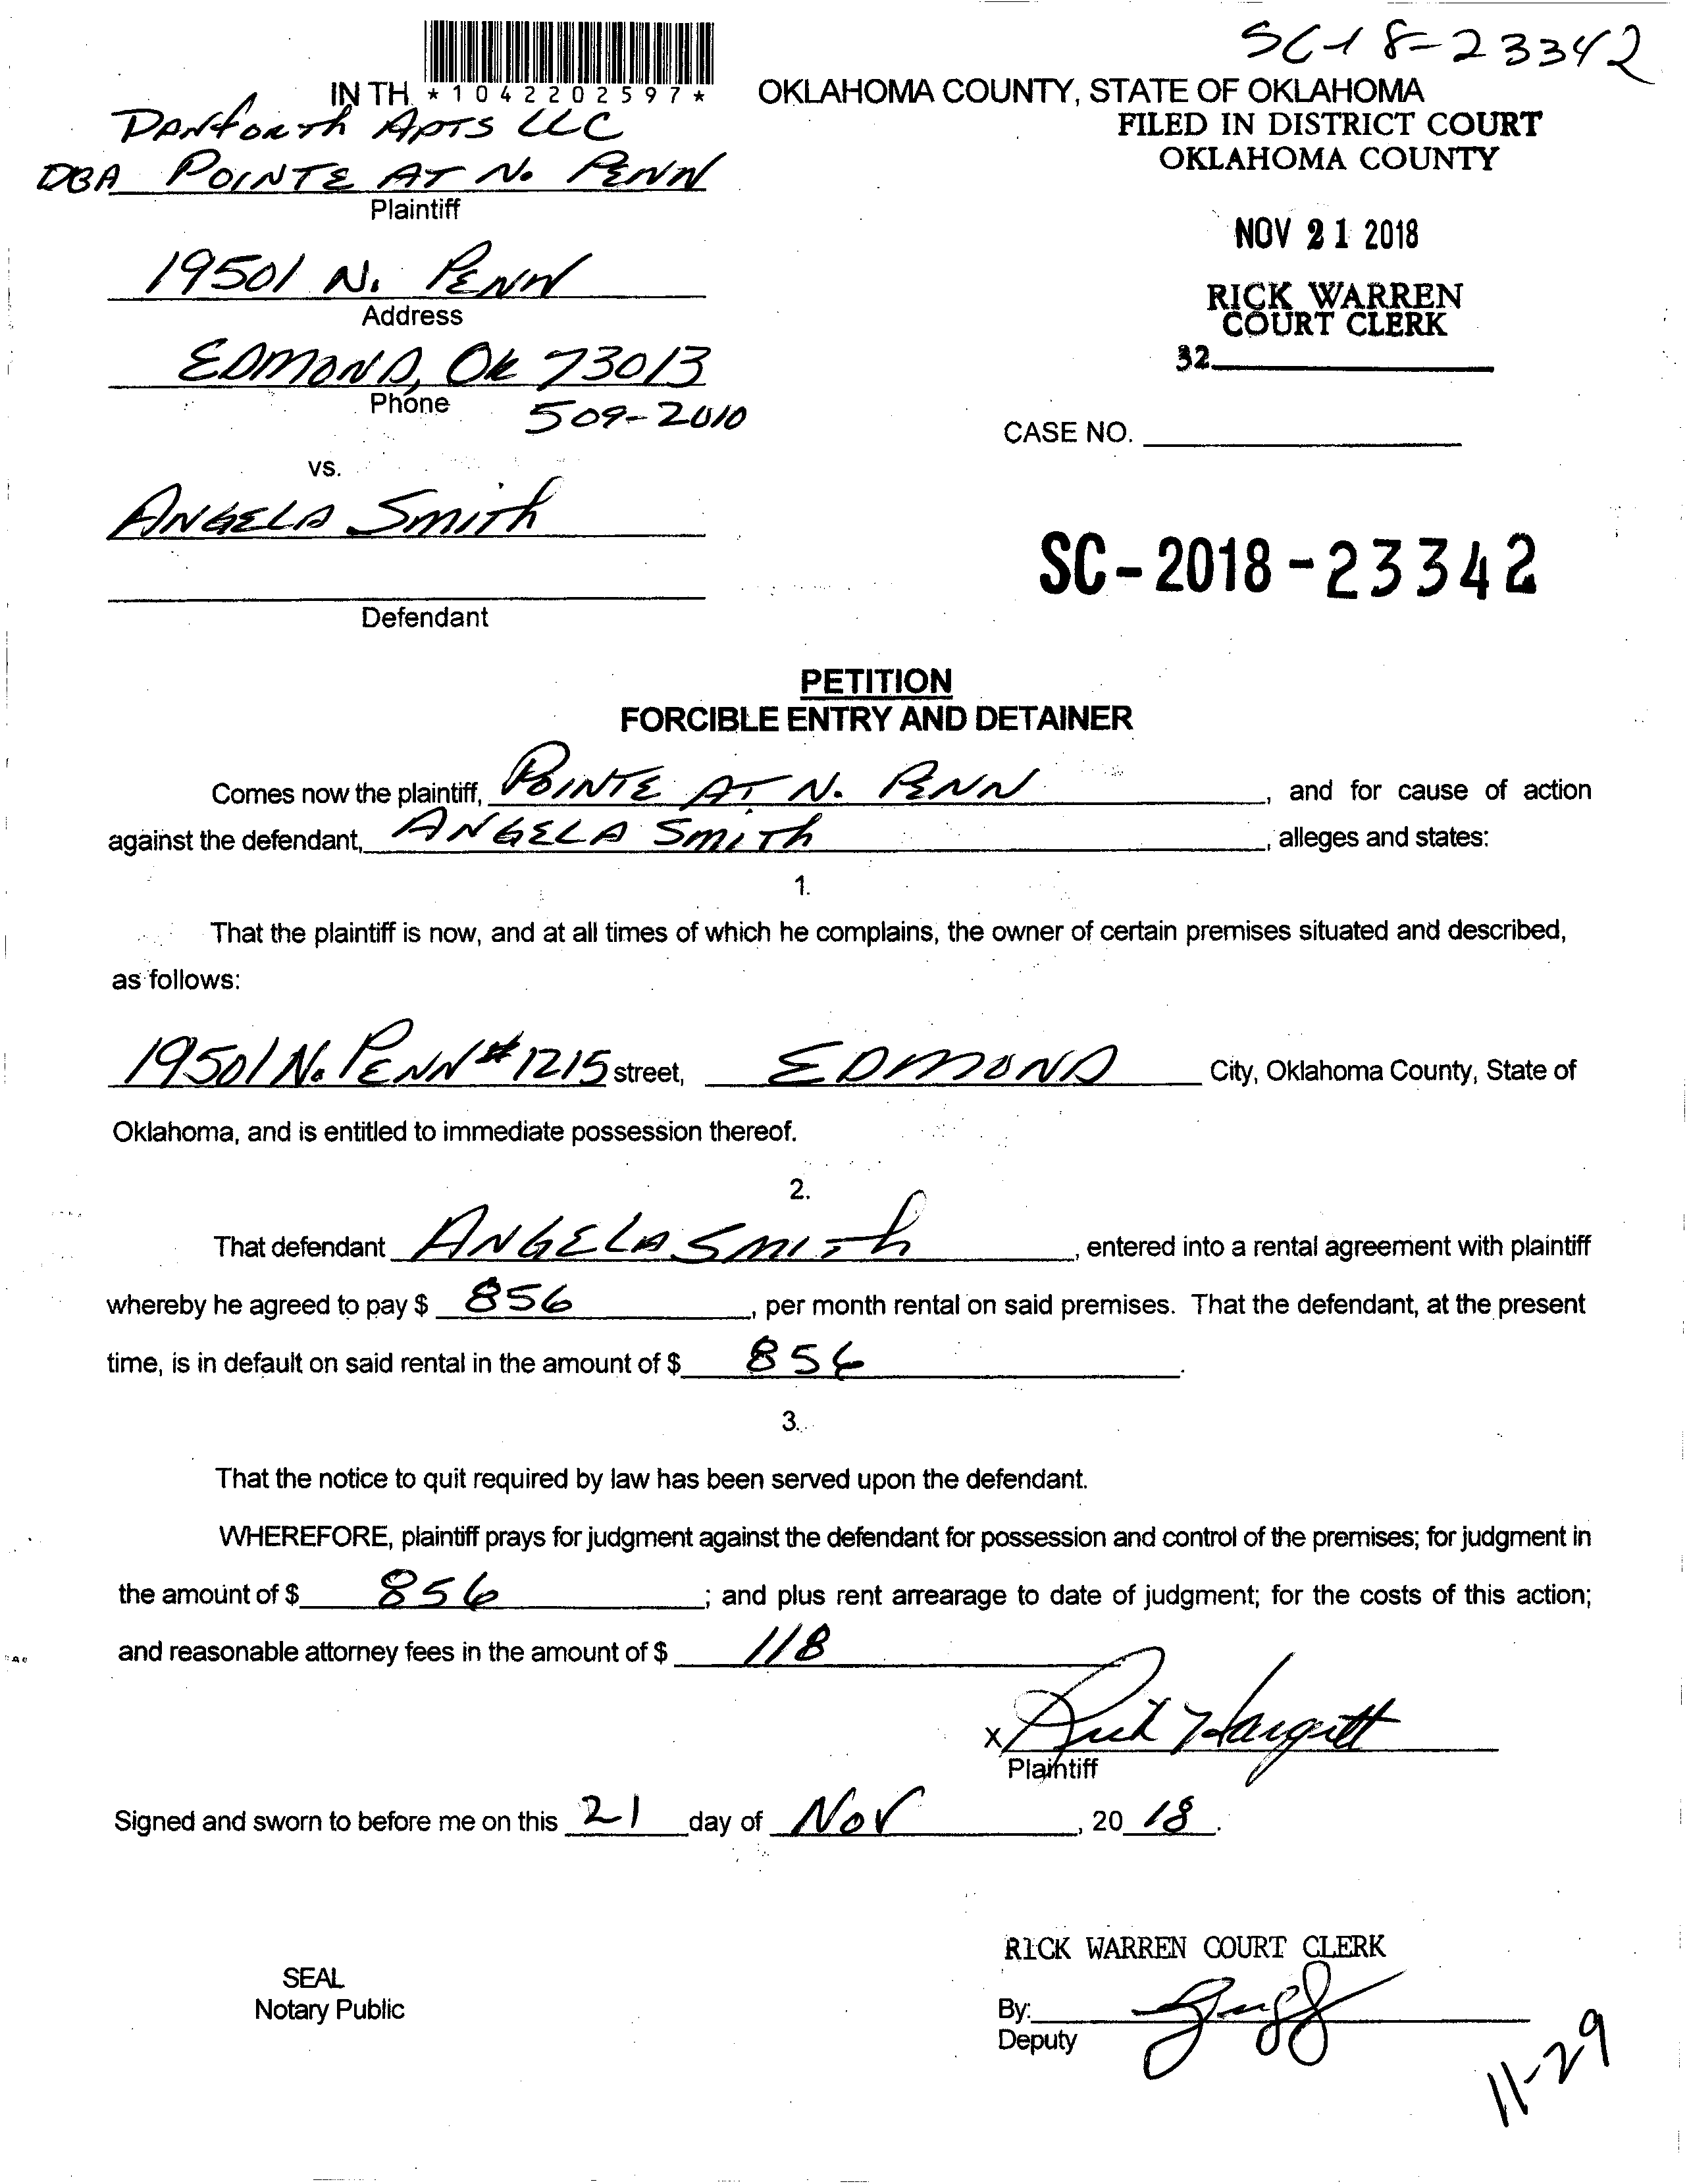 SC-18-23342
IN TH *1042202597* OKLAHOMA COUNTY, STATE OF OKLAHOMA
DANFORTH APTS LLC
DBA POINTE AT N. PENN
Plaintiff
FILED IN DISTRICT COURT
OKLAHOMA COUNTY
NOV 21 2018
RICK WARREN
COURT CLERK
32
19501 N. PENN
Address
EDMOND, OK 73013
Phone 509-2010
CASE NO.
vs.
ANGELA SMITH
Defendant
SC-2018-23342
PETITION
FORCIBLE ENTRY AND DETAINER
Comes now the plaintiff, POINTE AT N. PENN, and for cause of action
against the defendant, ANGELA SMITH, alleges and states:
1.
That the plaintiff is now, and at all times of which he complains, the owner of certain premises situated and described,
as follows:
19501 N. PENN #1215 street, EDMOND City, Oklahoma County, State of
Oklahoma, and is entitled to immediate possession thereof.
2.
That defendant ANGELA SMITH, entered into a rental agreement with plaintiff
whereby he agreed to pay $ 856, per month rental on said premises. That the defendant, at the present
time, is in default on said rental in the amount of $ 856.
3.
That the notice to quit required by law has been served upon the defendant.
WHEREFORE, plaintiff prays for judgment against the defendant for possession and control of the premises; for judgment in
the amount of $ 856; and plus rent arrearage to date of judgment; for the costs of this action;
and reasonable attorney fees in the amount of $ 118
x Rick Hargett
Plaintiff
Signed and sworn to before me on this 21 day of NOV, 20 18.
RICK WARREN COURT CLERK
SEAL
Notary Public
By:
Deputy
11-29